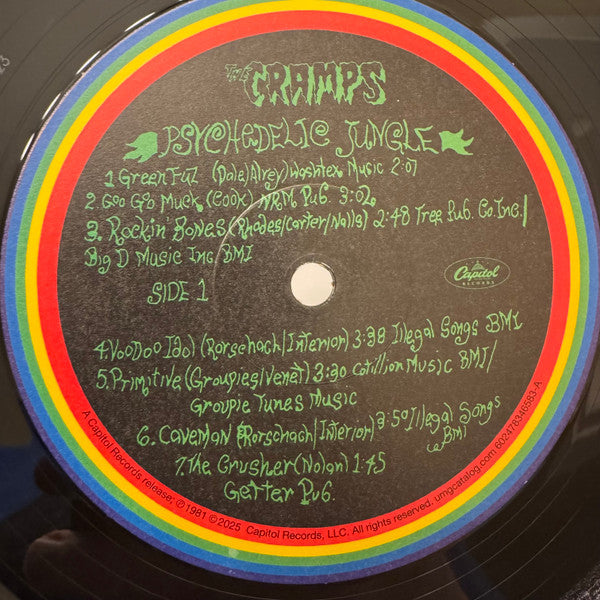 THE CRAMPS
PSYCHEDELIC JUNGLE
1 Green Fuz (Dale/Alrey) Washtex Music 2:07
2. Goo Goo Muck (Cook) NRM Pub. 3:02
3. Rockin' Bones (Rhodes/Carter/Nalls) 2:48 Tree Pub. Co Inc./
Big D Music Inc BMI
SIDE 1
Capitol
RECORDS
4. VooDoo Idol (Rorschach/Interior) 3:38 Illegal Songs BMI
5. Primitive (Groupies/Venet) 3:30 Cotillion Music BMI/
Groupie Tunes Music
6. Caveman (Rorschach/Interior) 3:50 Illegal Songs
BMI
7. The Crusher (Nolan) 1:45
Getter Pub.
A Capitol Records release; ℗1981 ©2025 Capitol Records, LLC. All rights reserved. umgcatalog.com 602478346583-A